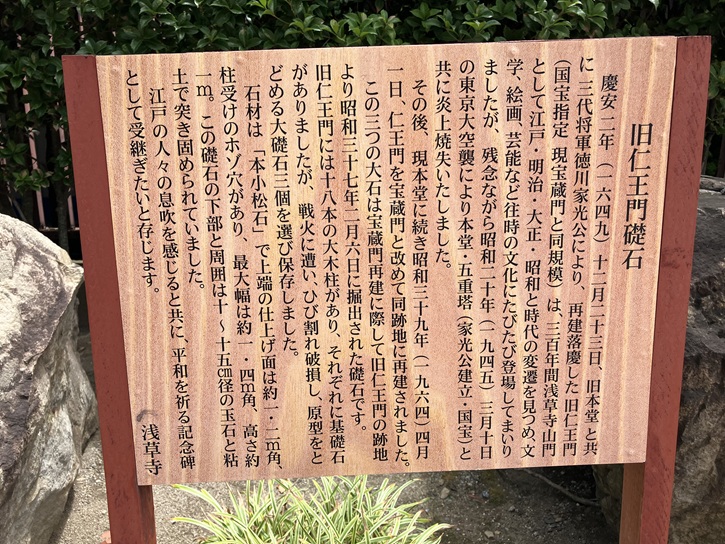 旧仁王門礎石
慶安二年（一六四九）十二月二十三日、旧本堂と共
に三代将軍徳川家光公により、再建落慶した旧仁王門
（国宝指定 現宝蔵門と同規模）は、三百年間浅草寺山門
として江戸・明治・大正・昭和と時代の変遷を見つめ、文
学、絵画、芸能など往時の文化にたびたび登場してまいり
ましたが、残念ながら昭和二十年（一九四五）三月十日
の東京大空襲により本堂・五重塔（家光公建立・国宝）と
共に炎上焼失いたしました。
その後、現本堂に続き昭和三十九年（一九六四）四月
一日、仁王門を宝蔵門と改めて同跡地に再建されました。
この三つの大石は宝蔵門再建に際して旧仁王門の跡地
より昭和三十七年二月六日に掘出された礎石です。
旧仁王門には十八本の大木柱があり、それぞれに基礎石
がありましたが、戦火に遭い、ひび割れ破損し、原型をと
どめる大礎石三個を選び保存しました。
石材は「本小松石」で上端の仕上げ面は約一・二m角、
柱受けのホゾ穴があり、最大幅は約一・四m角、高さ約
一m。この礎石の下部と周囲は十～十五㎝径の玉石と粘
土で突き固められていました。
江戸の人々の息吹を感じると共に、平和を祈る記念碑
として受継ぎたいと存じます。
浅草寺